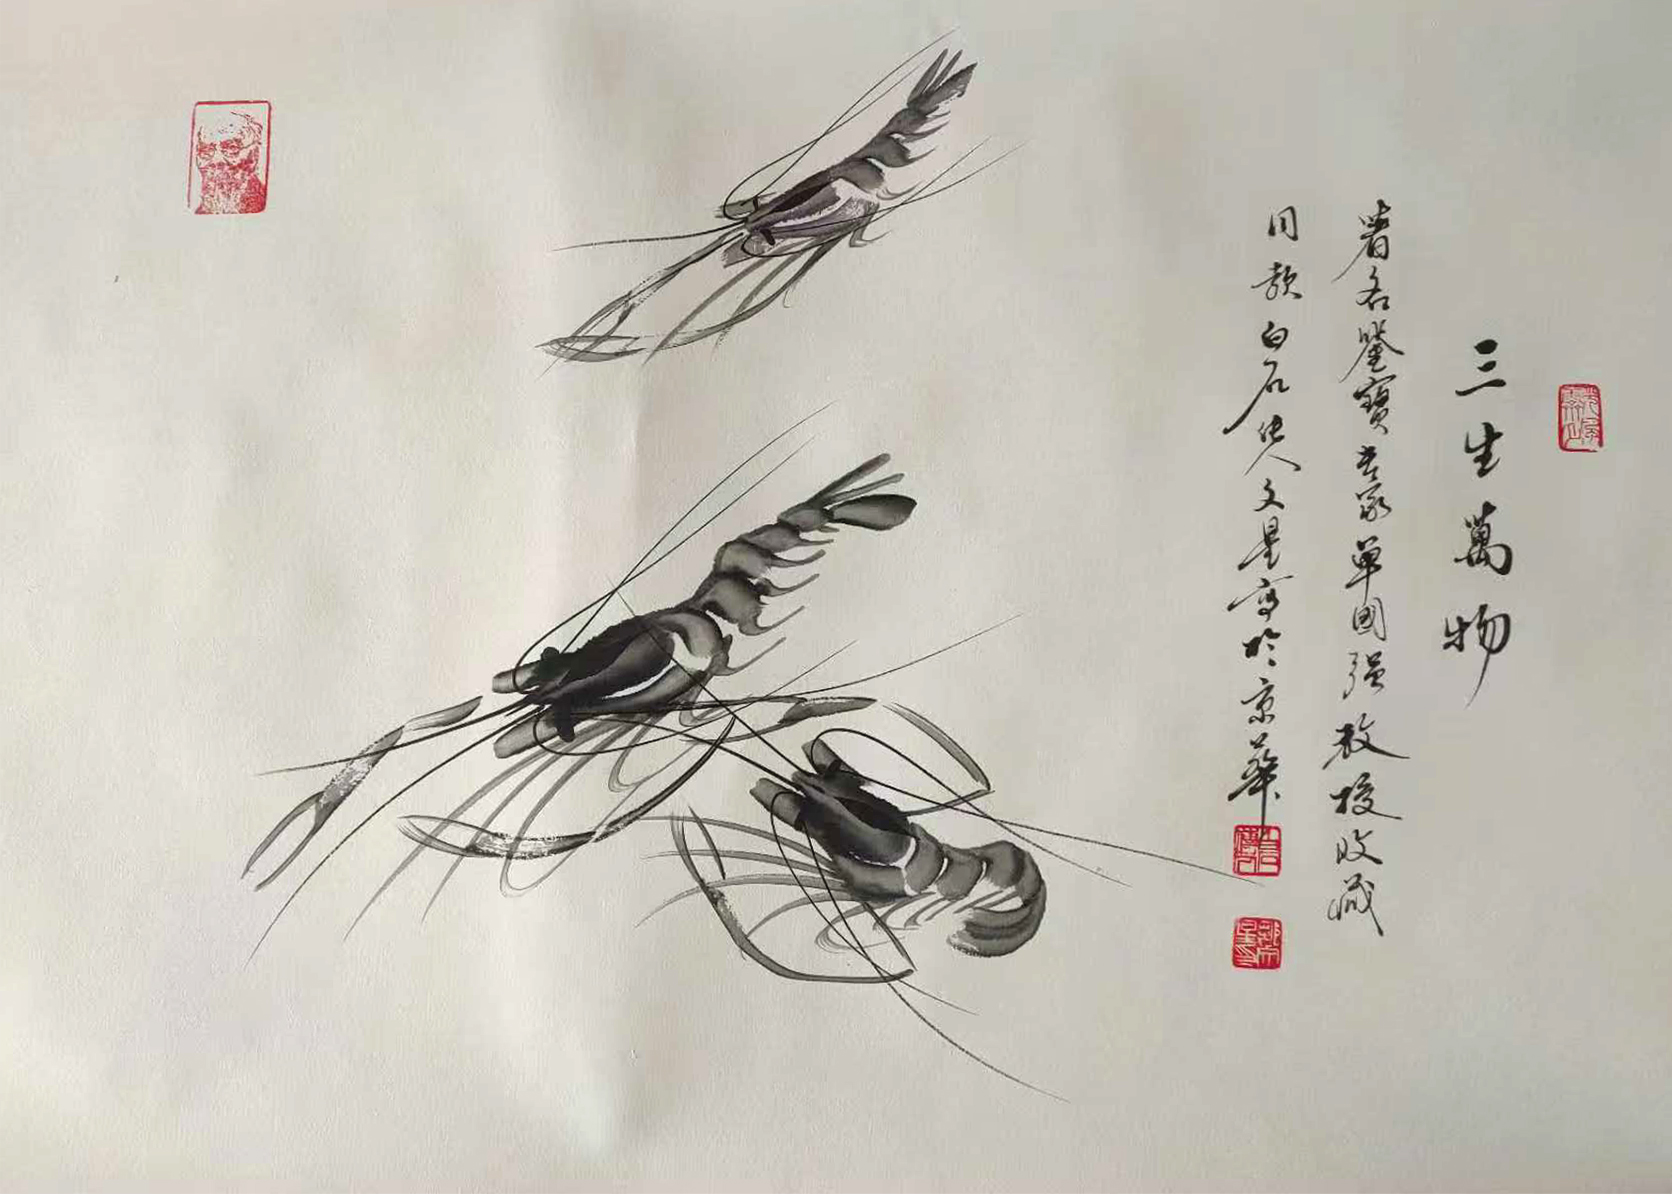 三生萬物
著名鑒寶专家單國强教授收藏
同款白石传人文星寫於京華